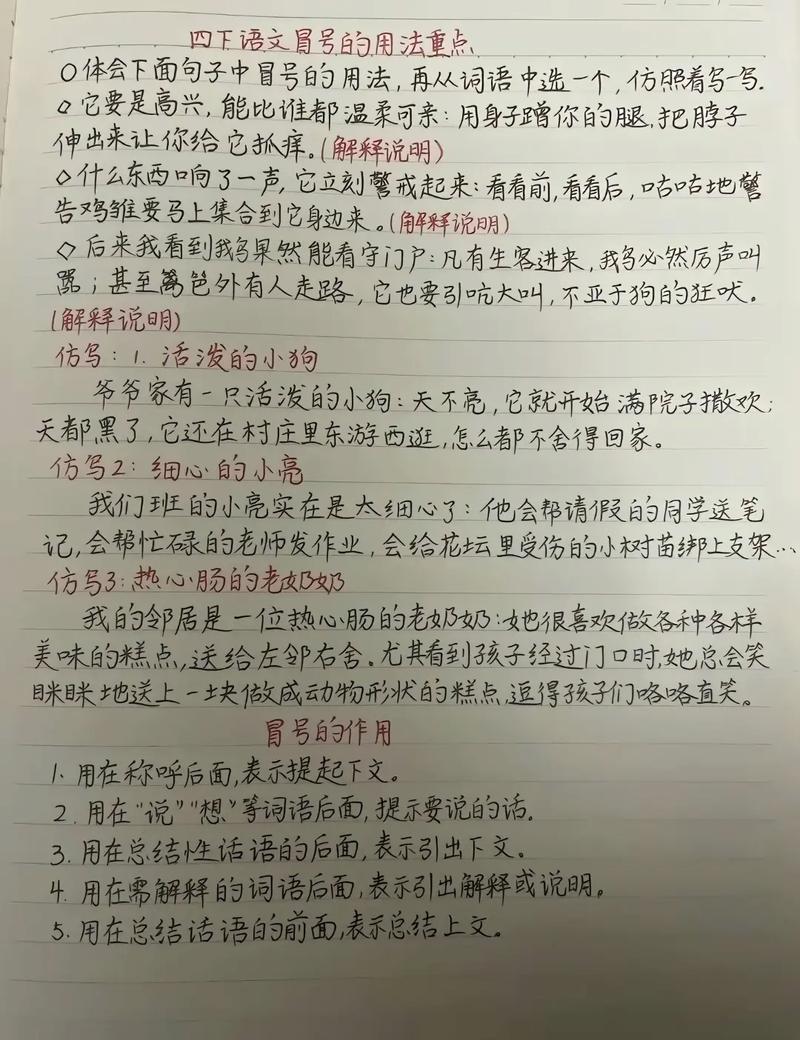 四下语文冒号的用法重点
○体会下面句子中冒号的用法，再从词语中选一个，仿照着写一写.
◇它要是高兴，能比谁都温柔可亲：用身子蹭你的腿，把脖子
伸出来让你给它抓痒。（解释说明）
◇什么东西响了一声，它立刻警戒起来：看看前，看看后，咕咕地警
告鸡雏要马上集合到它身边来。（解释说明）
◇后来我看到我鸟果然能看守门户：凡有生客进来，我鸟必然厉声叫
嚣；甚至篱笆外有人走路，它也要引吭大叫，不亚于狗的狂吠。
（解释说明）
仿写：1. 活泼的小狗
爷爷家有一只活泼的小狗：天不亮，它就开始满院子撒欢；
天都黑了，它还在村庄里东游西逛，怎么都不舍得回家。
仿写2：细心的小亮
我们班的小亮实在是太细心了：他会帮请假的同学送笔
记，会帮忙碌的老师发作业，会给花坛里受伤的小树苗绑上支架…
仿写3：热心肠的老奶奶
我的邻居是一位热心肠的老奶奶：她很喜欢做各种各样
美味的糕点，送给左邻右舍。尤其看到孩子经过门口时，她总会笑
眯眯地送上一块做成动物形状的糕点，逗得孩子们咯咯直笑。
冒号的作用
1. 用在称呼后面，表示提起下文。
2. 用在“说”“想”等词语后面，提示要说的话.
3. 用在总结性话语的后面，表示引出下文。
4. 用在需解释的词语后面，表示引出解释或说明。
5. 用在总结话语的前面，表示总结上文。